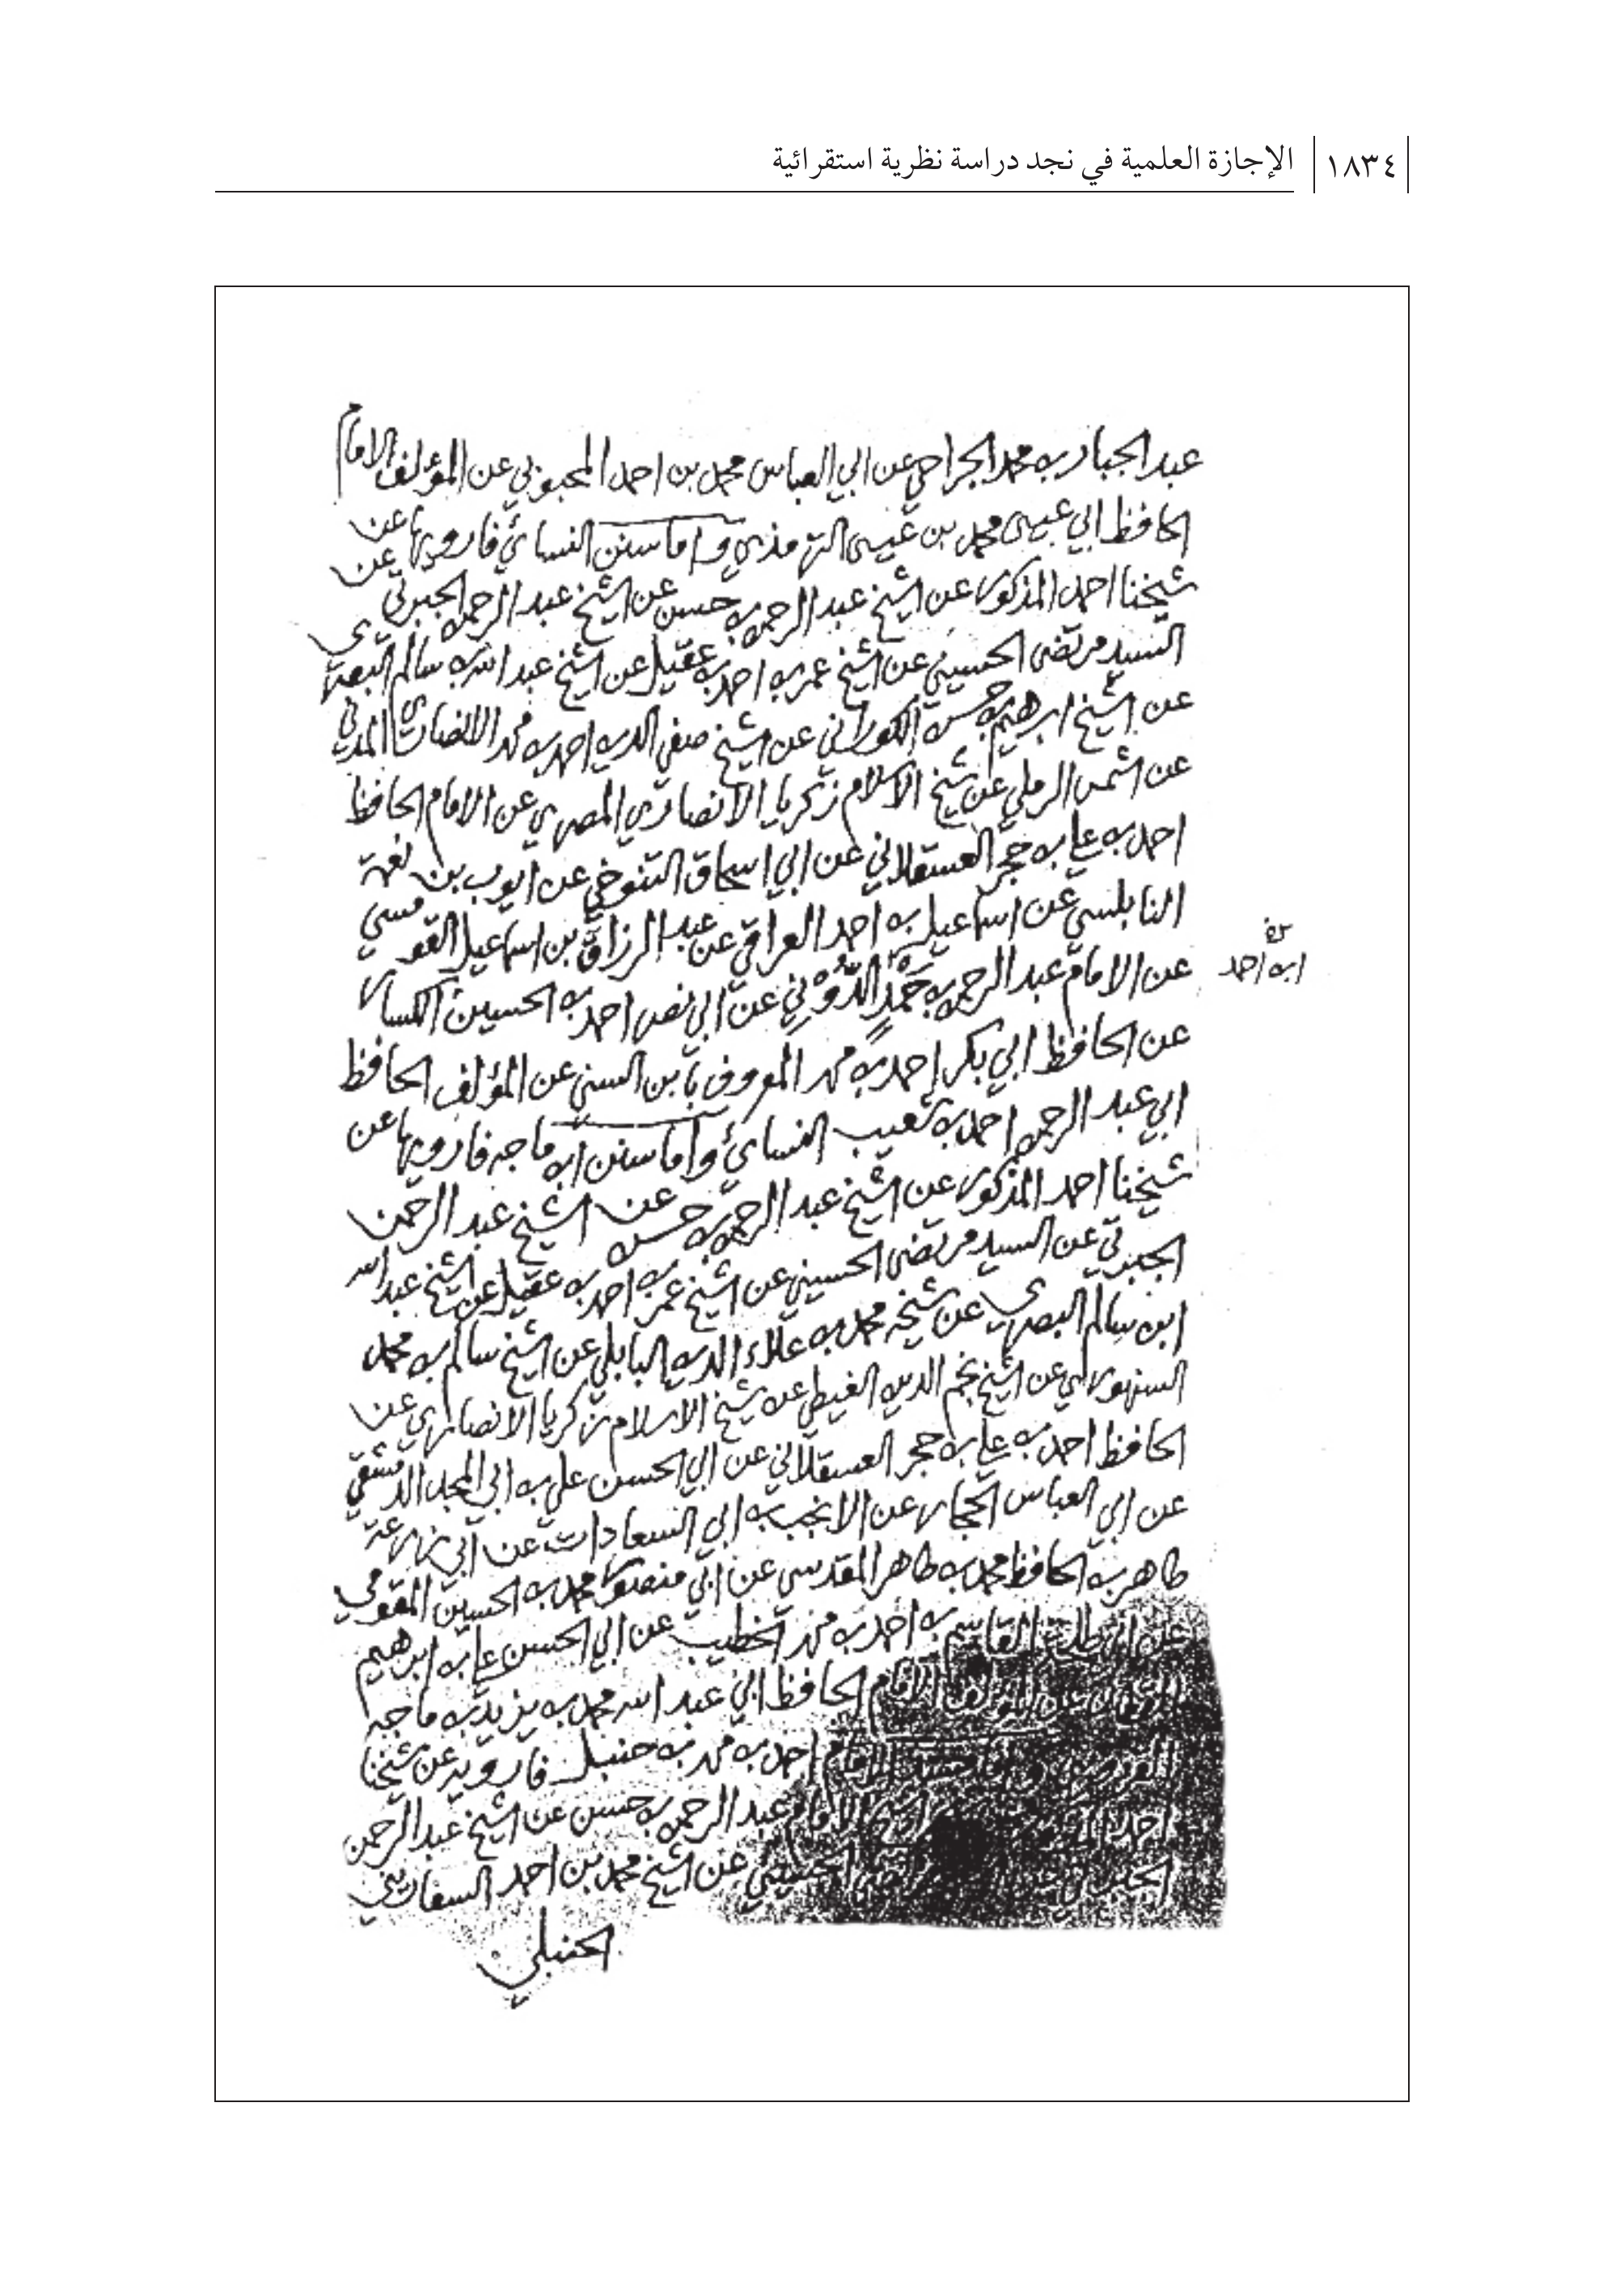 ١٨٣٤ الإجازة العلمية في نجد دراسة نظرية استقرائية
عبد الجبار بن محمد الجراحي عن ابي العباس محمد بن احمد المحبوبي عن المؤلف الامام
الحافظ ابي عيسى محمد بن عيسى الترمذي واما سنن النسائي فارويها عن
شيخنا احمد المذكور عن الشيخ عبد الرحمن بن حسن عن الشيخ عبد الرحمن الجبرتي عن
السيد مرتضى الحسيني عن الشيخ عمر بن احمد بن عقيل عن الشيخ عبد الله بن سالم البصري
عن الشيخ ابرهيم بن حسن الكوراني عن الشيخ صفي الدين احمد بن محمد الانصاري المدني
عن الشمس الرملي عن شيخ الاسلام زكريا الانصاري المصري عن الامام الحافظ
احمد بن علي بن حجر العسقلاني عن ابي اسحاق التنوخي عن ايوب بن نعمة
النابلسي عن اسماعيل بن احمد العراقي عن عبد الرزاق بن اسماعيل القومسي
عن الامام عبد الرحمن بن حمد الدوني عن ابي نصر احمد بن الحسين الكسار
ابن احمد
عن الحافظ ابي بكر احمد بن محمد المعروف بابن السني عن المؤلف الحافظ
ابي عبد الرحمن احمد بن شعيب النسائي واما سنن ابن ماجه فارويها عن
شيخنا احمد المذكور عن الشيخ عبد الرحمن بن حسن عن الشيخ عبد الرحمن
الجبرتي عن السيد مرتضى الحسيني عن الشيخ عمر بن احمد بن عقيل عن الشيخ عبد الله
ابن سالم البصري عن شيخه محمد بن علاء الدين البابلي عن الشيخ سالم بن محمد
السنهوري عن الشيخ نجم الدين الغيطي عن شيخ الاسلام زكريا الانصاري عن
الحافظ احمد بن علي بن حجر العسقلاني عن ابي الحسن علي بن ابي المجد الدمشقي
عن ابي العباس الحجار عن الانجب بن ابي السعادات عن ابي زرعة
طاهر بن الحافظ محمد بن طاهر المقدسي عن ابي منصور محمد بن الحسين المقومي
عن ابي طلحة القاسم بن احمد بن محمد الخطيب عن ابي الحسن علي بن ابرهيم
القطان عن المؤلف الامام الحافظ ابي عبد الله محمد بن يزيد بن ماجه
القزويني واما مسند الامام احمد بن محمد بن حنبل فارويه عن شيخنا
احمد الشيخ الامام عبد الرحمن بن حسن عن الشيخ عبد الرحمن
الجبرتي الحسيني عن الشيخ محمد بن احمد السفاريني
الحنبلي